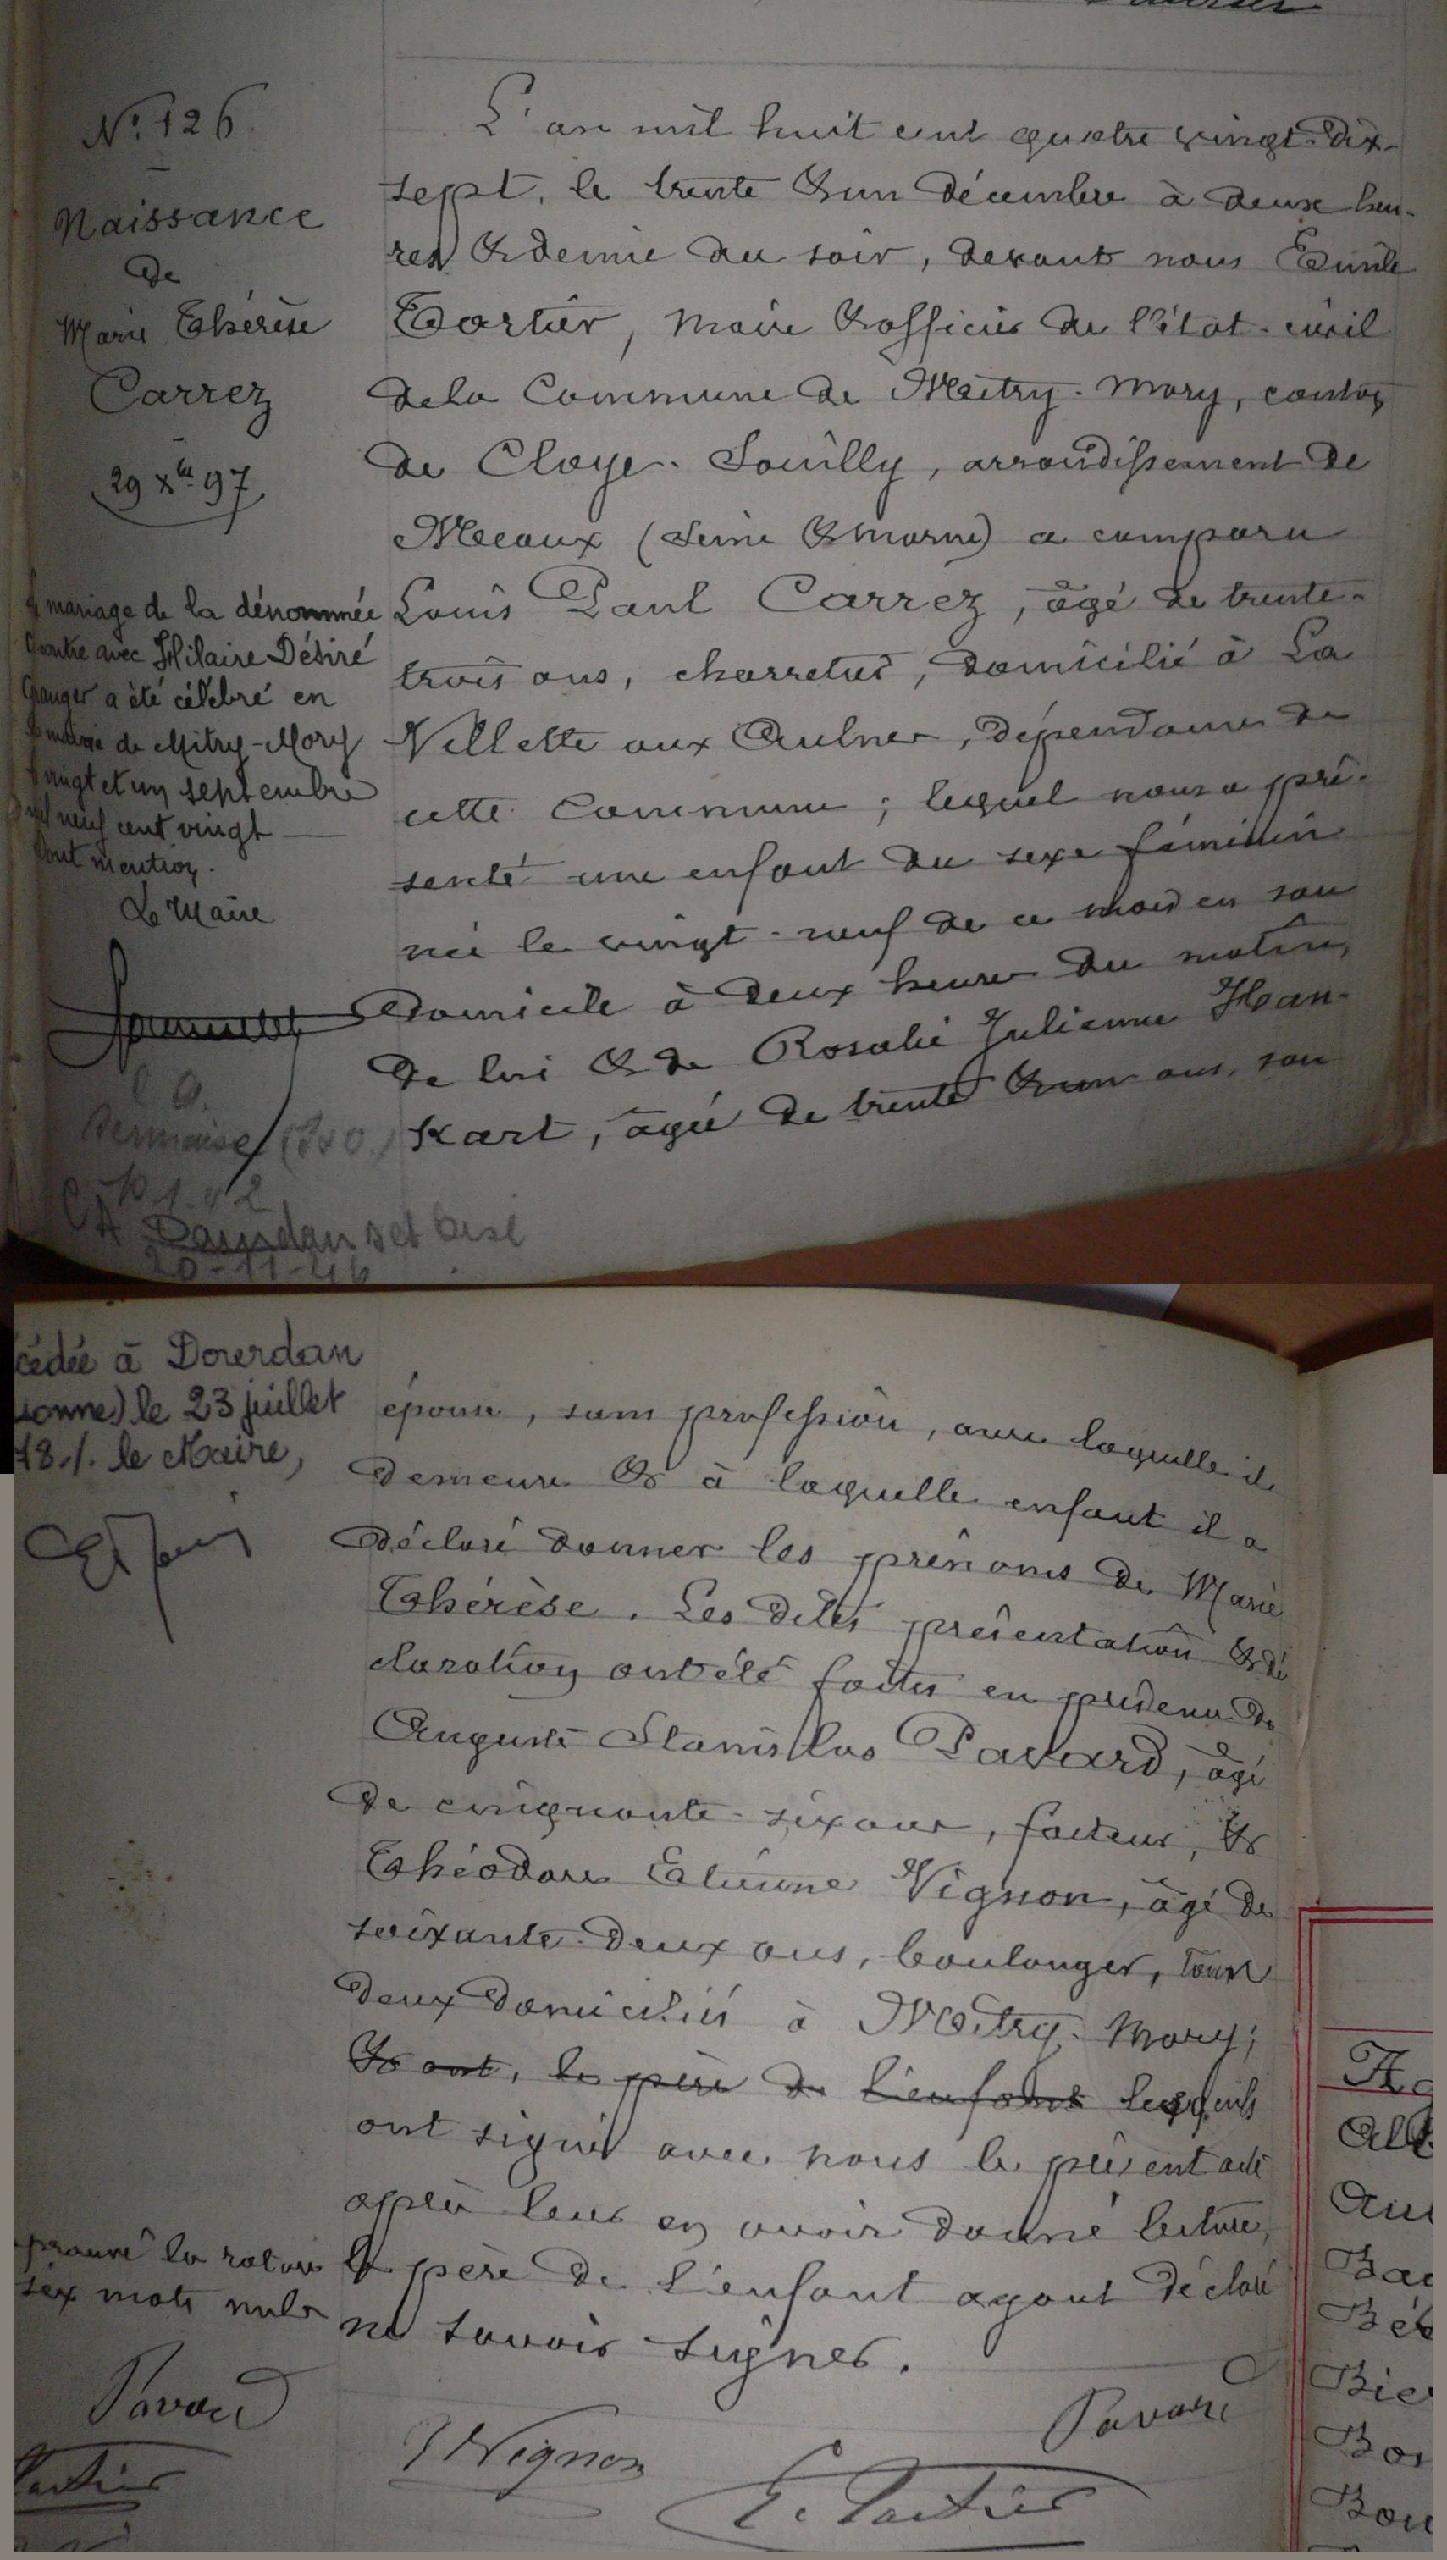 N° 126
Naissance
de
Marie Thérèse
Carrez
29 Xbre 97
mariage de la dénommée
contre avec Hilaire Désiré
Granger a été célébré en
mairie de Mitry-Mory
vingt et un septembre
mil neuf cent vingt
Dont mention.
Le Maire
L'an mil huit cent quatre vingt-dix-
sept, le trente & un décembre à deux heu-
res & demie du soir, devant nous Emile
Tartier, Maire & officier de l'état-civil
de la Commune de Mitry-Mory, canton
de Claye-Souilly, arrondissement de
Meaux (Seine & Marne) a comparu
Louis Paul Carrez, âgé de trente-
trois ans, charretier, domicilié à La
Villette aux Aulnes, dépendance de
cette Commune; lequel nous a pré-
senté une enfant du sexe féminin
née le vingt-neuf de ce mois en son
domicile à deux heures du matin,
de lui & de Rosalie Julienne Han-
kart, âgée de trente & un ans, son
C A Dourdan
20-11-46
cédée à Dourdan
sonne) le 23 juillet
78./. le Maire,
épouse, sans profession, avec laquelle il
demeure & à laquelle enfant il a
déclaré donner les prénoms de Marie
Thérèse. Les dites présentation & dé
claration ont été faites en présence de
Auguste Stanislas Pavard, âgé
de cinquante-six ans, facteur, &
Théodore Etienne Vignon, âgé de
soixante-deux ans, boulanger, tous
deux domiciliés à Mitry-Mory;
& ont, le père de l'enfant lesquels
ont signé avec nous le présent acte
après leur en avoir donné lecture,
le père de l'enfant ayant déclaré
ne savoir signer.
prouvé la rature
six mots nuls
Pavard
Tartier
Vignon
Pavard
E. Tartier